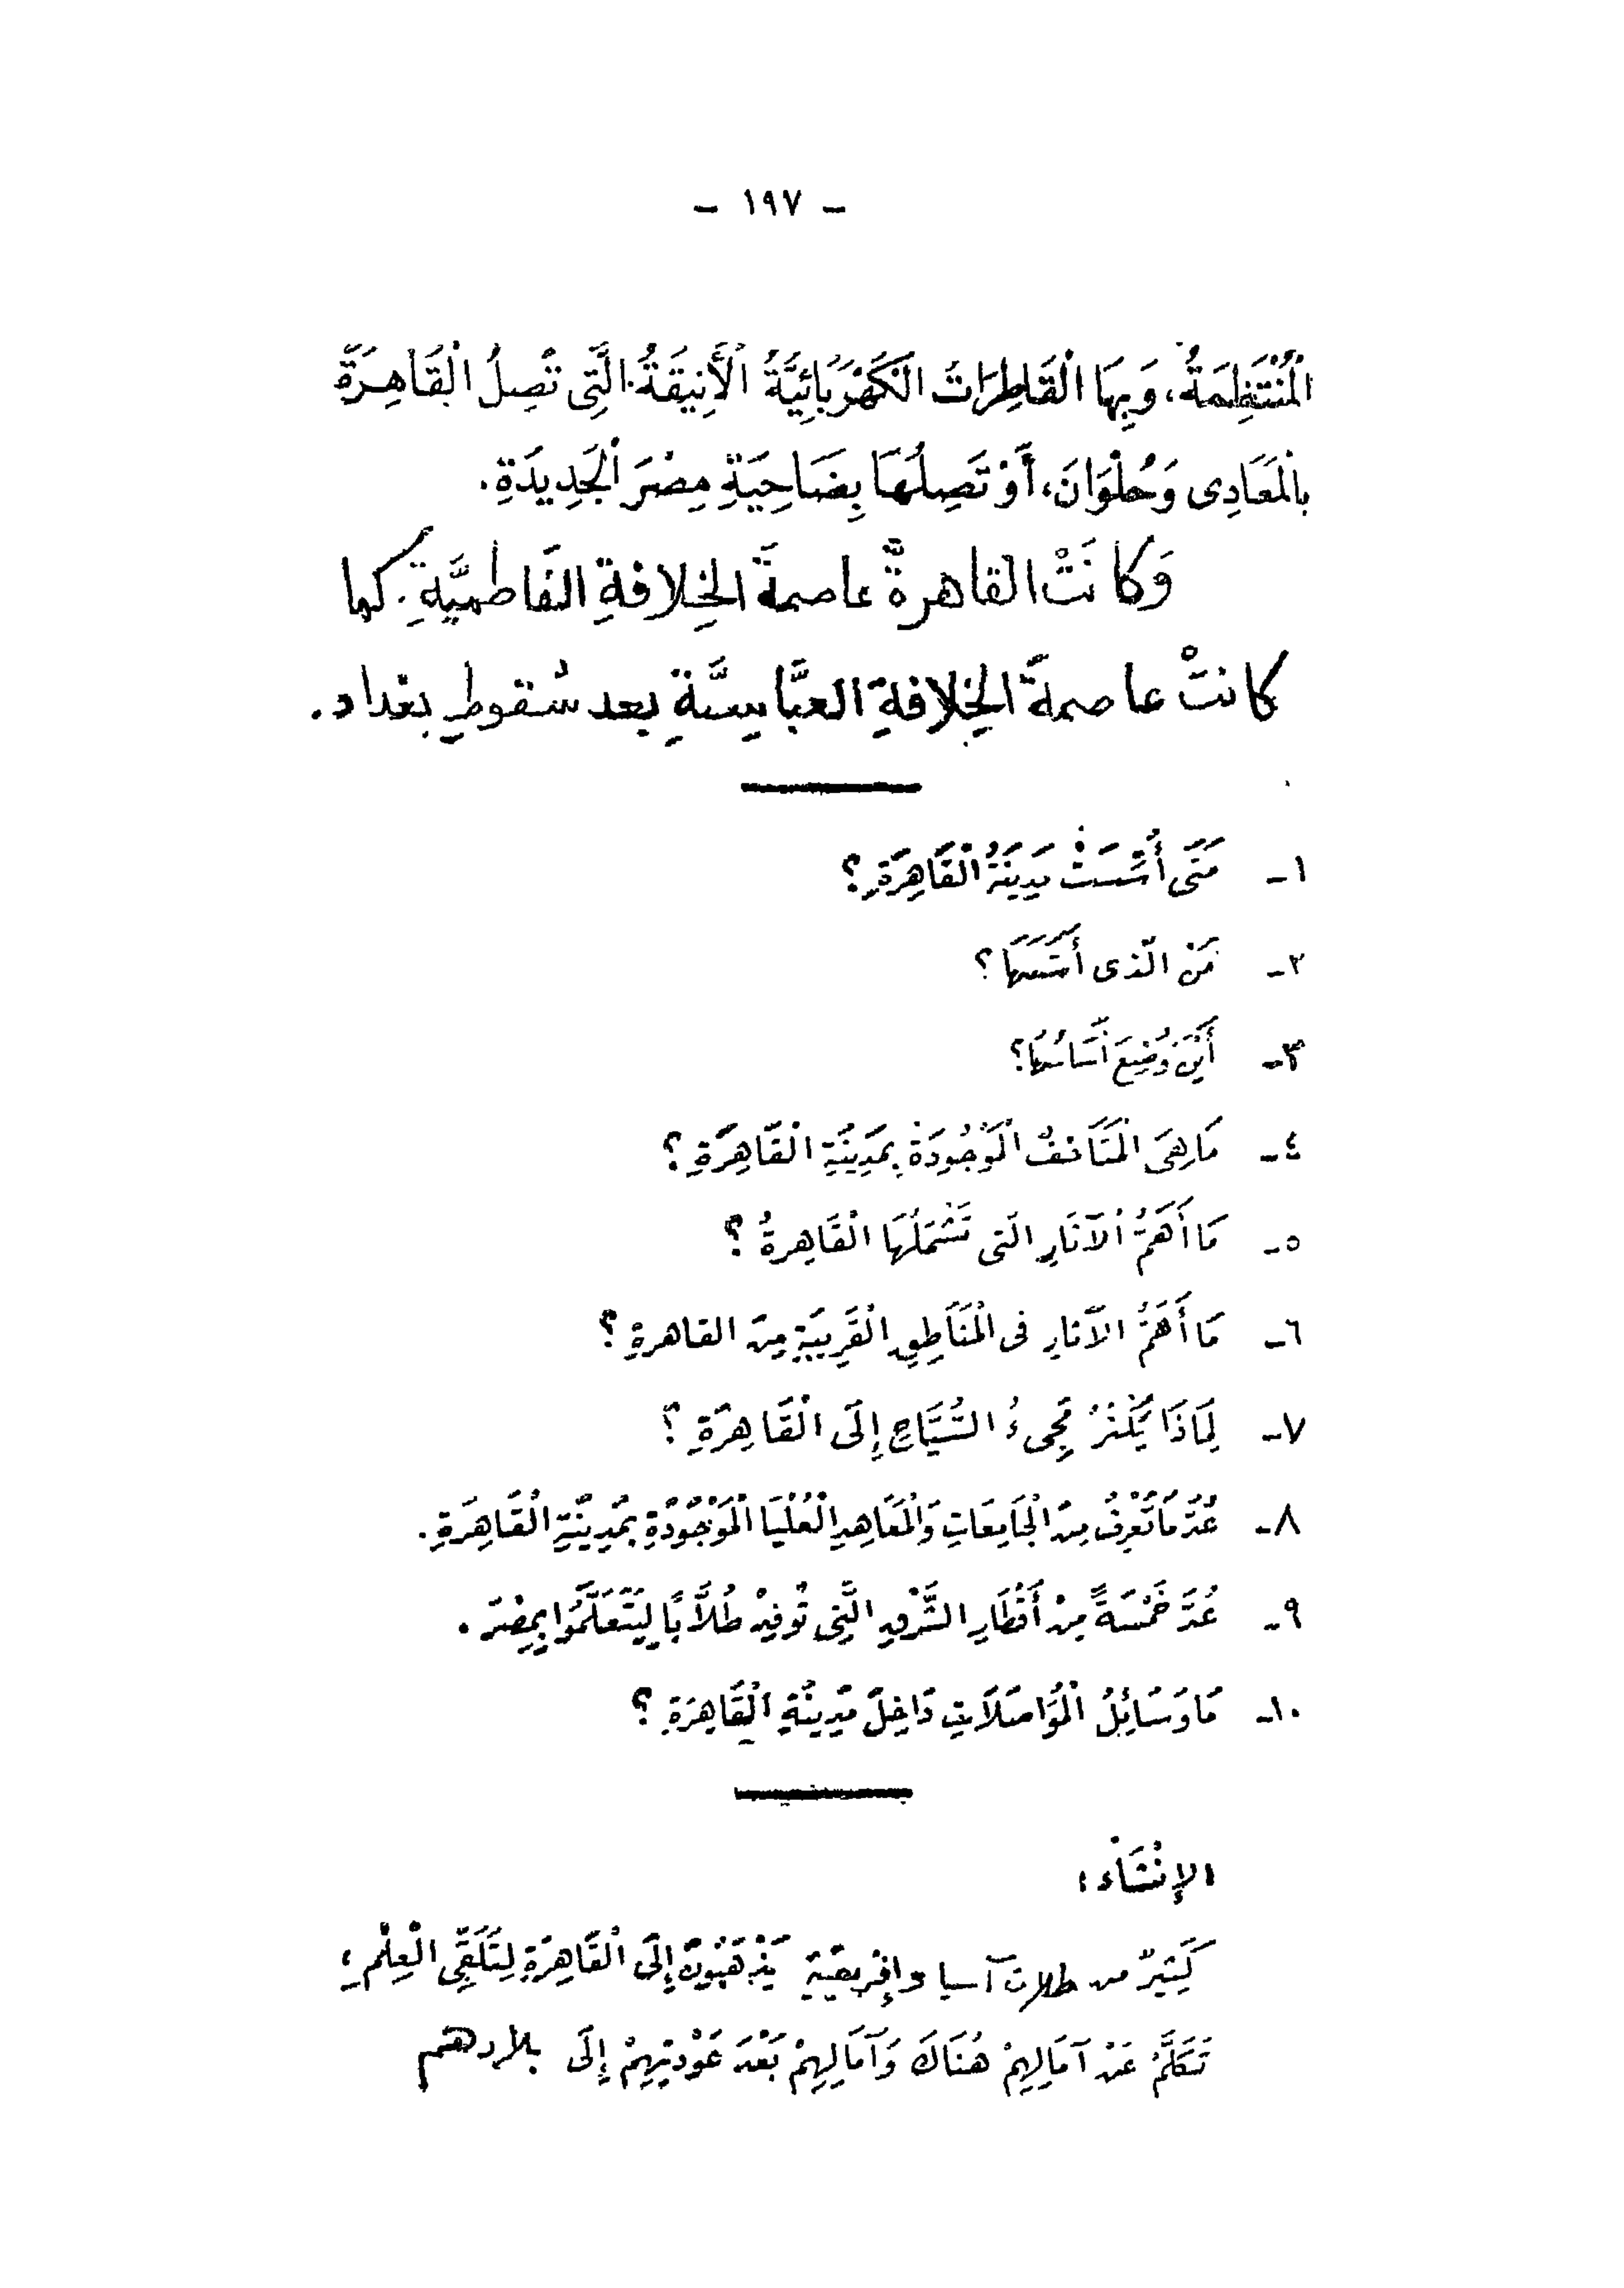 - ١٩٧ -
الْمُنْتَظِمَةُ، وَبِهَا الْقَاطِرَاتُ الْكَهْرَبَائِيَّةُ الْأَنِيقَةُ الَّتِى تَصِلُ الْقَاهِرَةَ
بِالْمَعَادِى وَحُلْوَانَ، أَوْ تَصِلُهَا بِضَاحِيَةِ مِصْرَ الْجَدِيدَةِ.
وَكانَتْ القاهرةُ عاصمةَ الخِلافةِ الفَاطميَّةِ. كما
كانتْ عاصمةَ الخِلافةِ العبَّاسِيَّةِ بعد سُقوطِ بغداد.
١- مَتَى أُسِّسَتْ مَدِينَةُ الْقَاهِرَةِ؟
٢- مَنْ الّذى أَسَّسَهَا؟
٣- أَيْنَ وُضِعَ أَسَاسُهَا؟
٤- مَا هِىَ الْمَتَاحِفُ الْمَوْجُودَةُ بِمَدِينَةِ الْقَاهِرَةِ؟
٥- مَا أَهَمُّ الْآثَارِ الَتى تَشْمَلُهَا الْقَاهِرةُ؟
٦- مَا أَهَمُّ الآثارِ فى الْمَنَاطِقِ الْقَرِيبَةِ مِنَ القاهرةِ؟
٧- لِمَاذَا يَكْثُرُ مَجِىءُ السُّيَّاحِ إِلَى الْقَاهِرَةِ؟
٨- عُدَّ مَا تَعْرِفُ مِنَ الْجَامِعَاتِ وَالْمَعَاهِدِ الْعُلْيَا الْمَوْجُودَةِ بِمَدِينَةِ الْقَاهِرَةِ.
٩- عُدَّ خَمْسَةً مِنْ أَقْطَارِ الشَّرْقِ الَّتِى تُوفِدُ طُلَّابًا لِيَتَعَلَّمُوا بِمِصْرَ.
١٠- مَا وَسَائِلُ الْمُوَاصَلَاتِ دَاخِلَ مَدِينَةِ الْقَاهِرَةِ؟
الإِنْشَاء:
كَثِيرٌ من طلاب آسيا وإِفْرِيقِيَةِ يَذْهَبُونَ إِلَى الْقَاهِرَةِ لِتَلَقِّى الْعِلْمِ؛
تَكَلَّمْ عَنْ آمَالِهِمْ هُنَاكَ وَآمَالِهِمْ بَعْدَ عَوْدَتِهِمْ إِلَى بلادهم